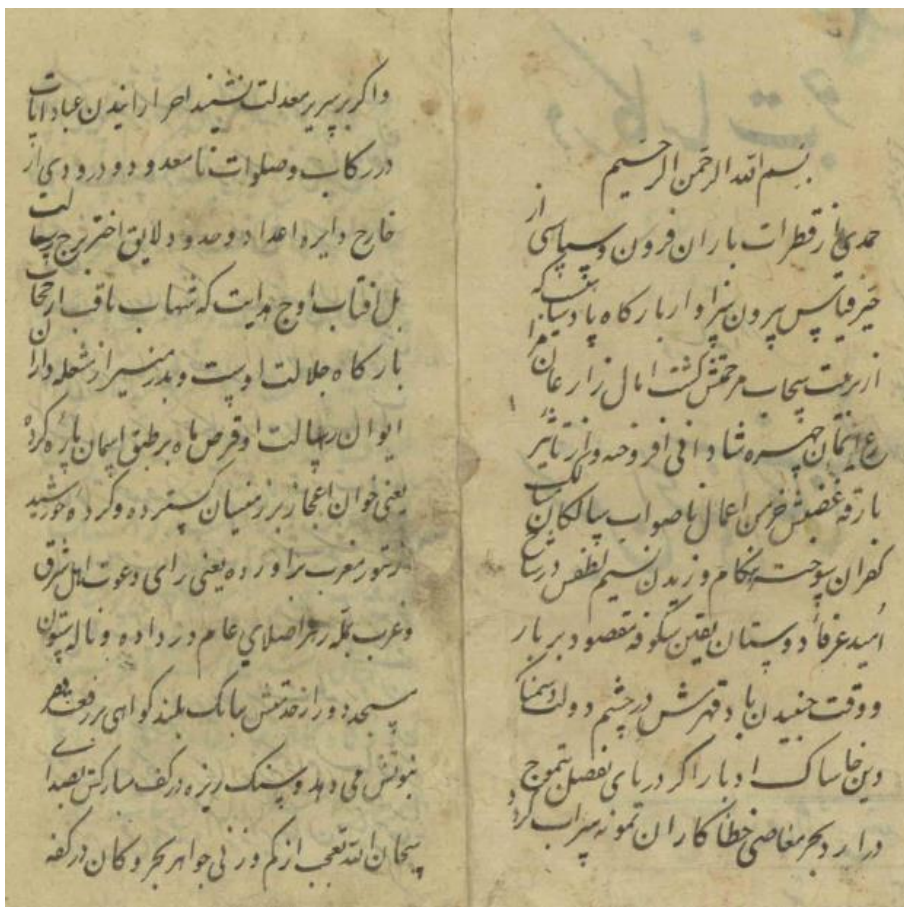 بسم الله الرحمن الرحیم
حمدی از قطرات باران فزون و سپاسی از
حیز قیاس بیرون سزاوار بارگاه پادشاهیست که
از برکت سحاب مرحمتش کشت امال زارعان
چهره شادابی افروخته و از تاثیر
بارقه غضبش خرمن اعمال ناصواب سالکان
کفران سوخته هنگام وزیدن نسیم لطفش در
امید عرفا دوستان یقین شکوفه مقصود بربار
و وقت جنبیدن باد قهرش در چشم دولت دشمنان
دین خاساک ادبار اگر دریای تموج
درارد بحر معاصی خطاکاران نمونه سراب کردد
واگر بر سریر معدلت نشیند احرار
در رکاب وصلوات نامعدود و درودی از
خارج دایره اعداد وحدود لایق اختر برج رسالت
بل افتاب اوج هدایت که شهاب ثاقب از
بارگاه جلالت اوست و بدر منیر از مشعله داران
ایوان رسالت او قرص ماه بر طبق اسمان پاره کرده
یعنی خوان اعجاز بر زمینیان گسترده و کرده خورشید
از تنور مغرب براورده یعنی برای دعوت اهل شرق
وغرب صلای عام در داده و ناله ستون
مسجد دور از خدمتش ببانک بلند کواهی بر رفعت
نبوتش می دهد و سنک ریزه در کف مبارکش بصدای
سبحان الله تعجب از کم وزنی جواهر بحر و کان در کفه